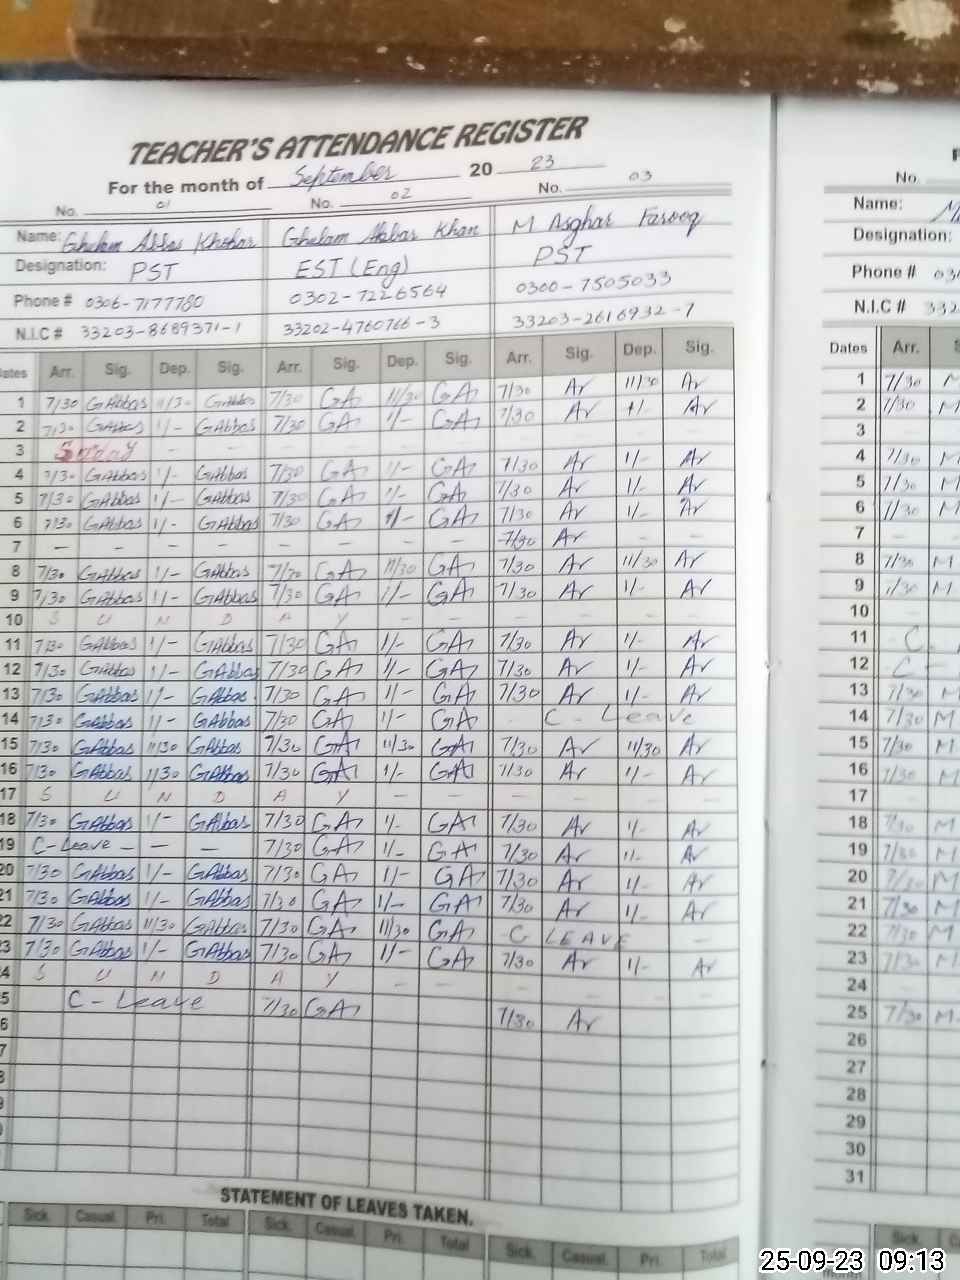 TEACHER'S ATTENDANCE REGISTER
For the month of September 20 23
No. 01 No. 02 No. 03
Name: Ghulam Abbas Khokhar Ghulam Akbar Khan M Asghar Farooq
Designation: PST EST (Eng) PST
Phone # 0306-7177780 0302-7226564 0300-7505033
N.I.C # 33203-8689371-1 33202-4760766-3 33203-2616932-7
Dates Arr. Sig. Dep. Sig. Arr. Sig. Dep. Sig. Arr. Sig. Dep. Sig.
1 7/30 GAbbas 11/30 GAbbas 7/30 GA 11/30 GA 7/30 Ar 11/30 Ar
2 7/30 GAbbas 1/- GAbbas 7/30 GA 1/- GA 7/30 Ar 1/- Ar
3 Sunday
4 7/30 GAbbas 1/- GAbbas 7/30 GA 1/- GA 7/30 Ar 1/- Ar
5 7/30 GAbbas 1/- GAbbas 7/30 GA 1/- GA 7/30 Ar 1/- Ar
6 7/30 GAbbas 1/- GAbbas 7/30 GA 1/- GA 7/30 Ar 1/- Ar
7 - - - - - - - - 7/30 Ar - -
8 7/30 GAbbas 1/- GAbbas 7/30 GA 11/30 GA 7/30 Ar 11/30 Ar
9 7/30 GAbbas 1/- GAbbas 7/30 GA 1/- GA 7/30 Ar 1/- Ar
10 S U N D A Y - - - - - -
11 7/30 GAbbas 1/- GAbbas 7/30 GA 1/- GA 7/30 Ar 1/- Ar
12 7/30 GAbbas 1/- GAbbas 7/30 GA 1/- GA 7/30 Ar 1/- Ar
13 7/30 GAbbas 1/- GAbbas 7/30 GA 1/- GA 7/30 Ar 1/- Ar
14 7/30 GAbbas 1/- GAbbas 7/30 GA 1/- GA C - Leave
15 7/30 GAbbas 11/30 GAbbas 7/30 GA 11/30 GA 7/30 Ar 11/30 Ar
16 7/30 GAbbas 11/30 GAbbas 7/30 GA 1/- GA 7/30 Ar 1/- Ar
17 S U N D A Y - - - - - -
18 7/30 GAbbas 1/- GAbbas 7/30 GA 1/- GA 7/30 Ar 1/- Ar
19 C-Leave - - - 7/30 GA 1/- GA 7/30 Ar 1/- Ar
20 7/30 GAbbas 1/- GAbbas 7/30 GA 1/- GA 7/30 Ar 1/- Ar
21 7/30 GAbbas 1/- GAbbas 7/30 GA 1/- GA 7/30 Ar 1/- Ar
22 7/30 GAbbas 11/30 GAbbas 7/30 GA 11/30 GA C LEAVE -
3 7/30 GAbbas 1/- GAbbas 7/30 GA 1/- GA 7/30 Ar 1/- Ar
4 S U N D A Y - - - - - -
5 C - Leave 7/30 GA 7/30 Ar
6
7
8
9
0
STATEMENT OF LEAVES TAKEN.
Sick. Casual. Pri. Total Sick. Casual. Pri. Total Sick. Casual. Pri. Total
No.
Name: M
Designation:
Phone # 03
N.I.C # 332
Dates Arr. S
1 7/30 M
2 7/30 M
3
4 7/30 M
5 7/30 M
6 7/30 M
7 -
8 7/30 M
9 7/30 M
10 -
11 C
12 C
13 7/30 M
14 7/30 M
15 7/30 M
16 7/30 M
17
18 7/30 M
19 7/30 M
20 7/30 M
21 7/30 M
22 7/30 M
23 7/30 M
24 -
25 7/30 M
26
27
28
29
30
31
Sick
25-09-23 09:13